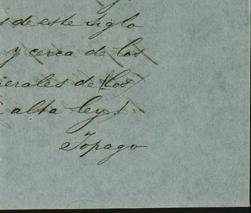 s de este siglo
y cerca de los
nerales de los
alta ley.
Topago